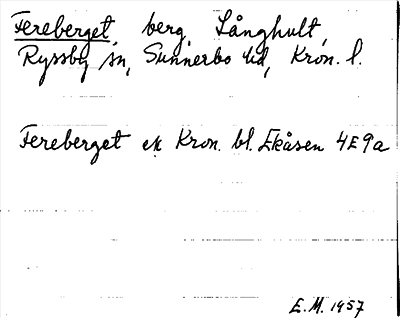 Fereberget, berg, Långhult,
Ryssby sn, Sunnerbo hd, Kron. l.
Fereberget ek Kron. bl. Ekåsen 4E9a
E.M. 1957